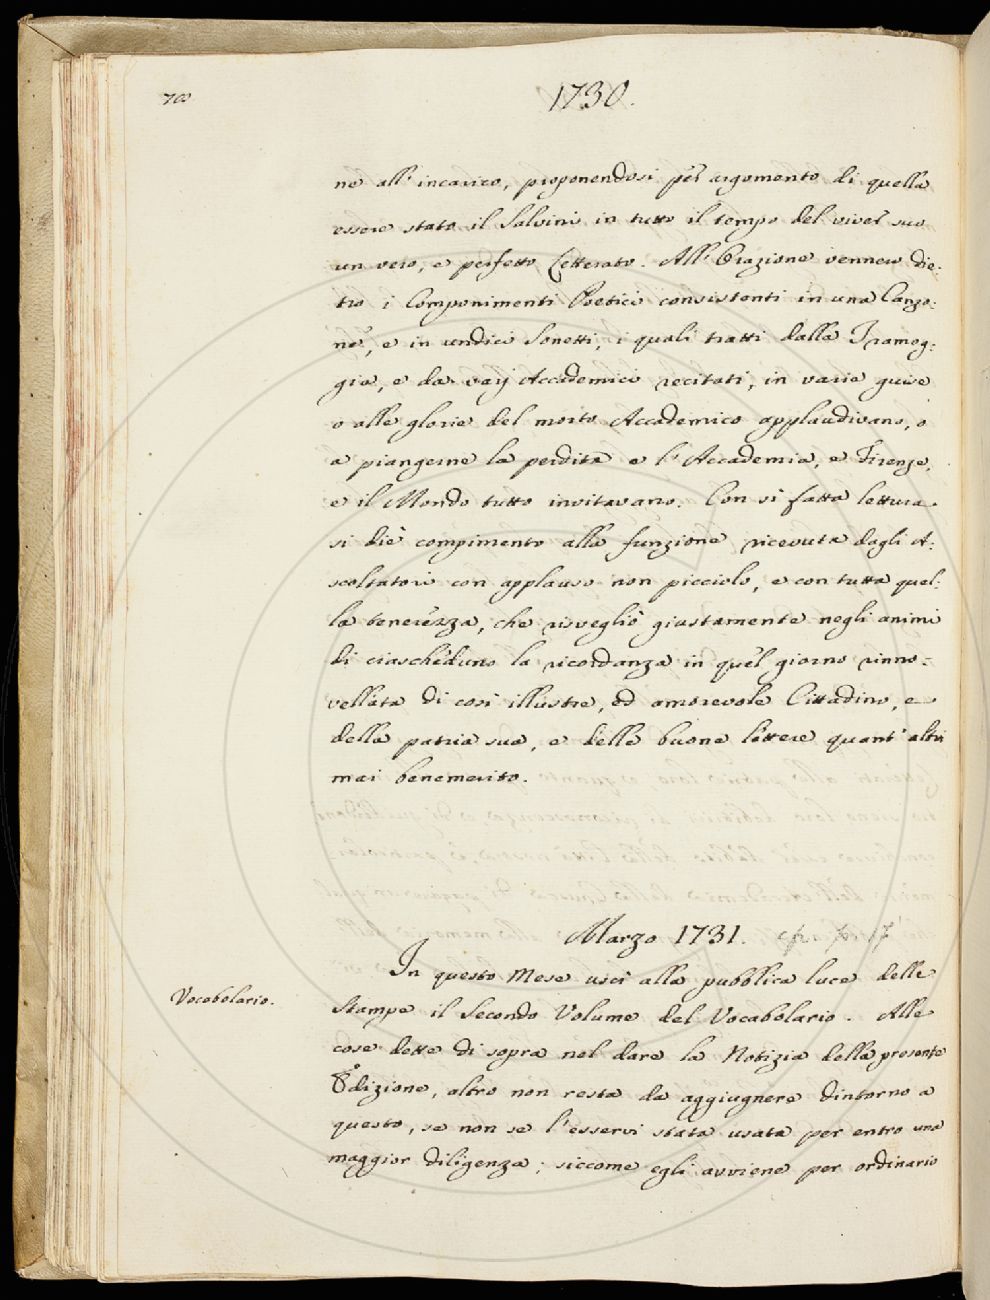 700
1730.
ne all' incarico, proponendosi per argomento di quella
essere stato il Salvini in tutto il tempo del viver suo
un vero, e perfetto Letterato. All' Orazione venner die-
tro i Componimenti Poetici consistenti in una Canzo-
ne, e in undici Sonetti, i quali tratti dalla Tramog-
gia, e da varj Accademici recitati, in varie guise
o alle glorie del morto Accademico applaudivano, o
a piangerne la perdita e l' Accademia, e Firenze,
e il Mondo tutto invitavano. Con sì fatta lettura
si diè compimento alla funzione ricevuta dagli A-
scoltatori con applauso non picciolo, e con tutta quel-
la tenerezza, che risvegliò giustamente negli animi
di ciascheduno la ricordanza in quel giorno rinno-
vellata di così illustre, ed amorevole Cittadino, e
della patria sua, e delle buone lettere quant' altri
mai benemerito.
Marzo 1731.
In questo Mese uscì alla pubblica luce delle
Vocabolario.
Stampe il Secondo Volume del Vocabolario. Alle
cose dette di sopra nel dare la Notizia della presente
Edizione, altro non resta da aggiugnere dintorno a
questo, se non se l'esservi stata usata per entro una
maggior diligenza; siccome egli avviene per ordinario